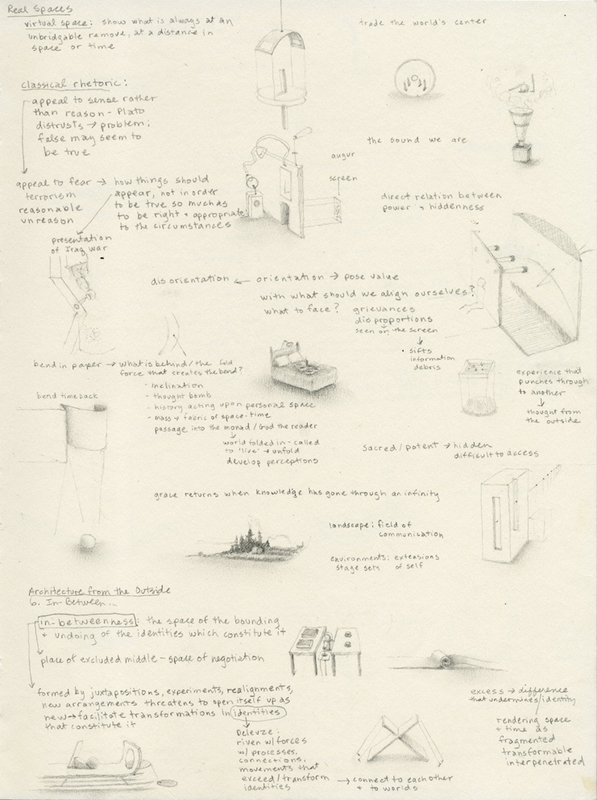 Real Spaces
virtual space: show what is always at an
unbridgable remove, at a distance in
space or time
trade the world's center
classical rhetoric:
appeal to sense rather
than reason - Plato
distrusts → problem:
false may seem to
be true
the sound we are
augur
screen
appeal to fear → how things should
terrorism
appear, not in order
reasonable
to be true so much as
unreason
to be right + appropriate
to the circumstances
direct relation between
power + hiddenness
presentation
of Iraq war
disorientation ← orientation → pose value
with what should we align ourselves?
what to face? grievances
disproportions
seen on the screen
• sifts
information
debris
bend in paper → what is behind/the fold
force that creates the bend?
- inclination
- thought bomb
- history acting upon personal space
- mass + fabric of space-time
passage into the monad/God the reader
world folded in - called
to 'live' → unfold
develop perceptions
bend time back
experience that
punches through
to another
thought from
the outside
sacred/potent → hidden
difficult to access
grace returns when knowledge has gone through an infinity
landscape: field of
communication
environments: extensions
stage sets of self
Architecture from the Outside
6. In-Between...
in-betweenness: the space of the bounding
+ undoing of the identities which constitute it
place of excluded middle - space of negotiation
formed by juxtapositions, experiments, realignments,
new arrangements threatens to open itself up as
new → facilitate transformations in identities
that constitute it
Deleuze:
riven w/ forces
w/ processes,
connections,
movements that
exceed/transform
identities
→ connect to each other
+ to worlds
excess → difference
that undermines/identity
rendering space
+ time as
fragmented
transformable
interpenetrated